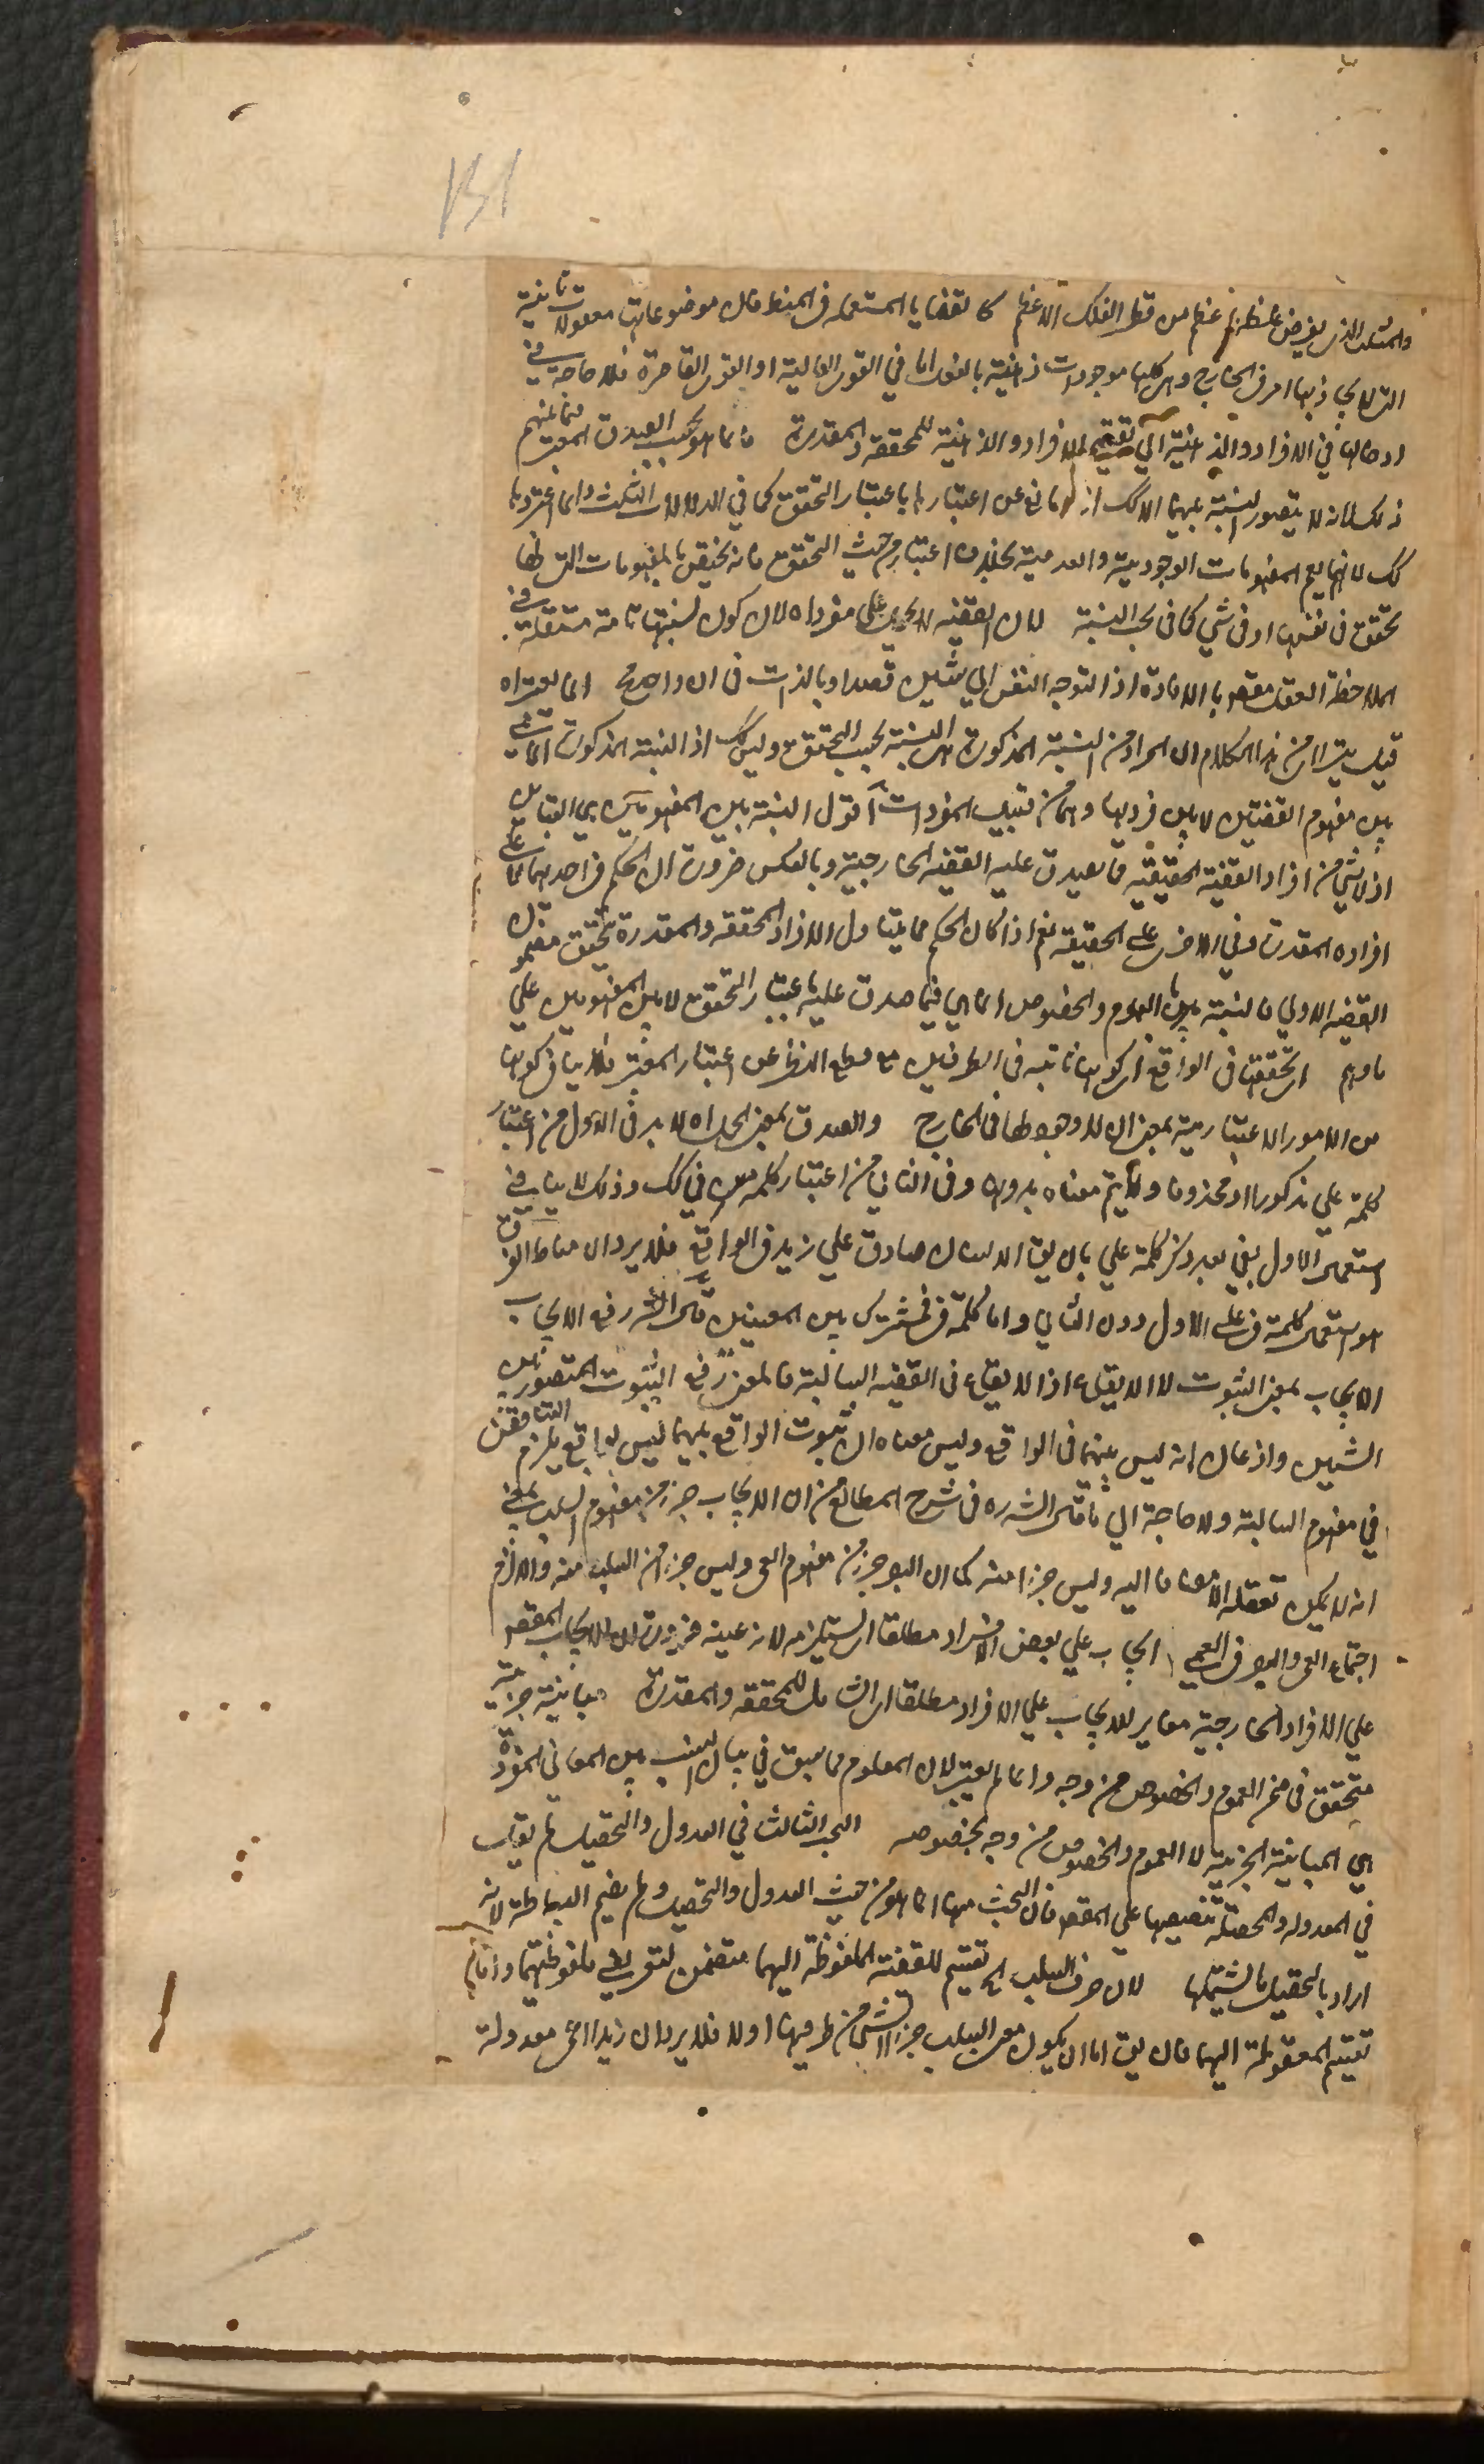 والمثلث الذي يفرض عظم من قطر الفلك الاعظم كا لقضايا المستعملة في المنطق فان موضوعاتها معقولات ثانية
التي لا يحاذيها امر في الخارج وهي كلها موجودات ذهنية بالفعل اما في القوى العالية او القوى القاصرة فلا حاجة في
ادخالها في الافراد والذهنية الي تقسيم الافراد والذهنية للمحققة والمقدرة فانما هو بحسب الصدق المعتبر فيما بينهم
ذلك لانه لا يتصور النسبة بينهما الا كك اذ لا مانع عن اعتبارها باعتبار التحقق كما في الدلالات الثلث وانما اعتبروها
كك لانها يعم المفهومات الوجودية والعدمية بخلاف اعتبارها من حيث التحقق فانه يختص بالمفهومات التي لها
تحقق في نفسها او في شي كما في بحث النسبة لان القضية لا يحمل علي مفرد اه لان كون نسبتها تامة مستقلة في
الملاحظة العقل مقصود بالافادة اذ التوجه النفس الي شيئين قصدا وبالذات في ان واحد انما يعتبر اه
قيل يتراا من هذا الكلام ان المراد من النسبة المذكورة هي النسبة بحسب التحقق وليس كك اذ النسبة المذكورة انما هي
بين مفهوم القضيتين لا بين فرديها وهما من قبيل المفردات اقول النسبة بين المفهومين هي التباين
اذ لا شي من افراد القضية الحقيقية فما يصدق عليه القضية الخارجية وبالعكس ضرورة ان الحكم في احديهما علي
افراده المقدرة وفي الاخرى علي الحقيقة نعم اذا كان الحكم مما يتناول الافراد المحققة والمقدرة تحقق مضمون
القضية الاولي فالنسبة بينهما بالعموم والخصوص انما هي فيما صدق عليه باعتبار التحقق لا بين المفهومين علي
ما وهم اي تحققها في الواقع اي كونها ثابتة في الطرفين مع قطع النظر عن اعتبار المعتبر فلا ينافي كونها
من الامور الاعتبارية بمعنى ان لا وجود لها في الخارج والصدق بمعنى الحمل اه لا بد في الاول من اعتبار
كلمة علي مذكورا او محذوفا ولا يتم معناه بدونها وفي الثاني من اعتبار كلمة في كك وذلك لا ينافي
استعمال الاول بفي بعد ذكر كلمة علي بان يقال الانسان صادق علي زيد في الواقع فلا يرد ان مناط الفرق
هو استعمال كلمة في علي الاول دون الثاني واما كلمة في فمشترك بين المعنيين قال الش رفع الايجاب
الايجاب بمعنى الثبوت لا الايقاع اذ لا ايقاع في القضية السالبة فالمعنى رفع الثبوت المتصور بين
الشيئين واذعان انه ليس بينهما في الواقع وليس معناه ان ثبوت الواقع بينهما ليس بواقع يلزم التناقض
في مفهوم السالبة ولا حاجة الي ما قال الش ره في شرح المطالع من ان الايجاب جزء من مفهوم السلب بمعنى
انه لا يمكن تعقله الا مضافا اليه وليس جزءا منه كما ان البصر جزء من مفهوم العمى وليس جزءا من العمى والا لزم
اجتماع العمى والبصر في العمي الايجاب علي بعض الافراد مطلقا اي يستلزمه لانه عينه ضرورة ان الايجاب المقصور
علي الافراد الخارجية مغاير للايجاب علي الافراد مطلقا اي الشامل للمحققة والمقدرة مباينة جزئية
متحقق في ضمن العموم والخصوص من وجه وانما لم يعتبر لان المعلوم مما سبق في بيان النسب بين المعاني المفردة
هي المباينة الجزئية لا العموم والخصوص من وجه بخصوصه البحث الثالث في العدول والتحصيل لم يقل
في المعدولة والمحصلة تنصيصا علي المقصود فان البحث ههنا انما هو من حيث العدول والتحصيل ولم يضم البساطة لانه
اراد بالتحصيل ما يشملها لان حرف السلب اه تقسيم للقضية الملفوظة اليهما متضمن لتعريفي ملفوظيهما واما
تقسيم المعقولة اليهما فان يقال اما ان يكون معنى السلب جزءا لشي من طرفيها اولا فلا يرد ان زيدا اعمى معدولة